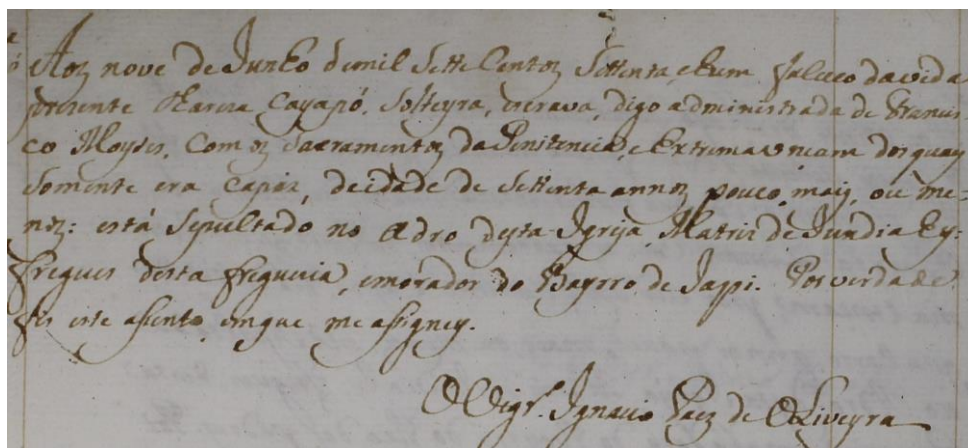 Aos nove de Junho de mil Sette Centos Settenta, e hum faleceo da vida
prezente Maria Cayapó, Solteyra, escrava, digo administrada de Francis
co Moyses, Com os Sacramentos da Penitencia, e Extrema uncam dos quays
somente era Capás, de idade de Settenta annos pouco, mays, ou me=
nos: está Sepultado no Adro desta Igreja Matris de Jundiahy,
fregues desta freguezia, e morador do Bayrro de Jappi. Por verdade
fis este asento, em que me assigney.
O Vigr.º Ignacio Paes de Oliveyra